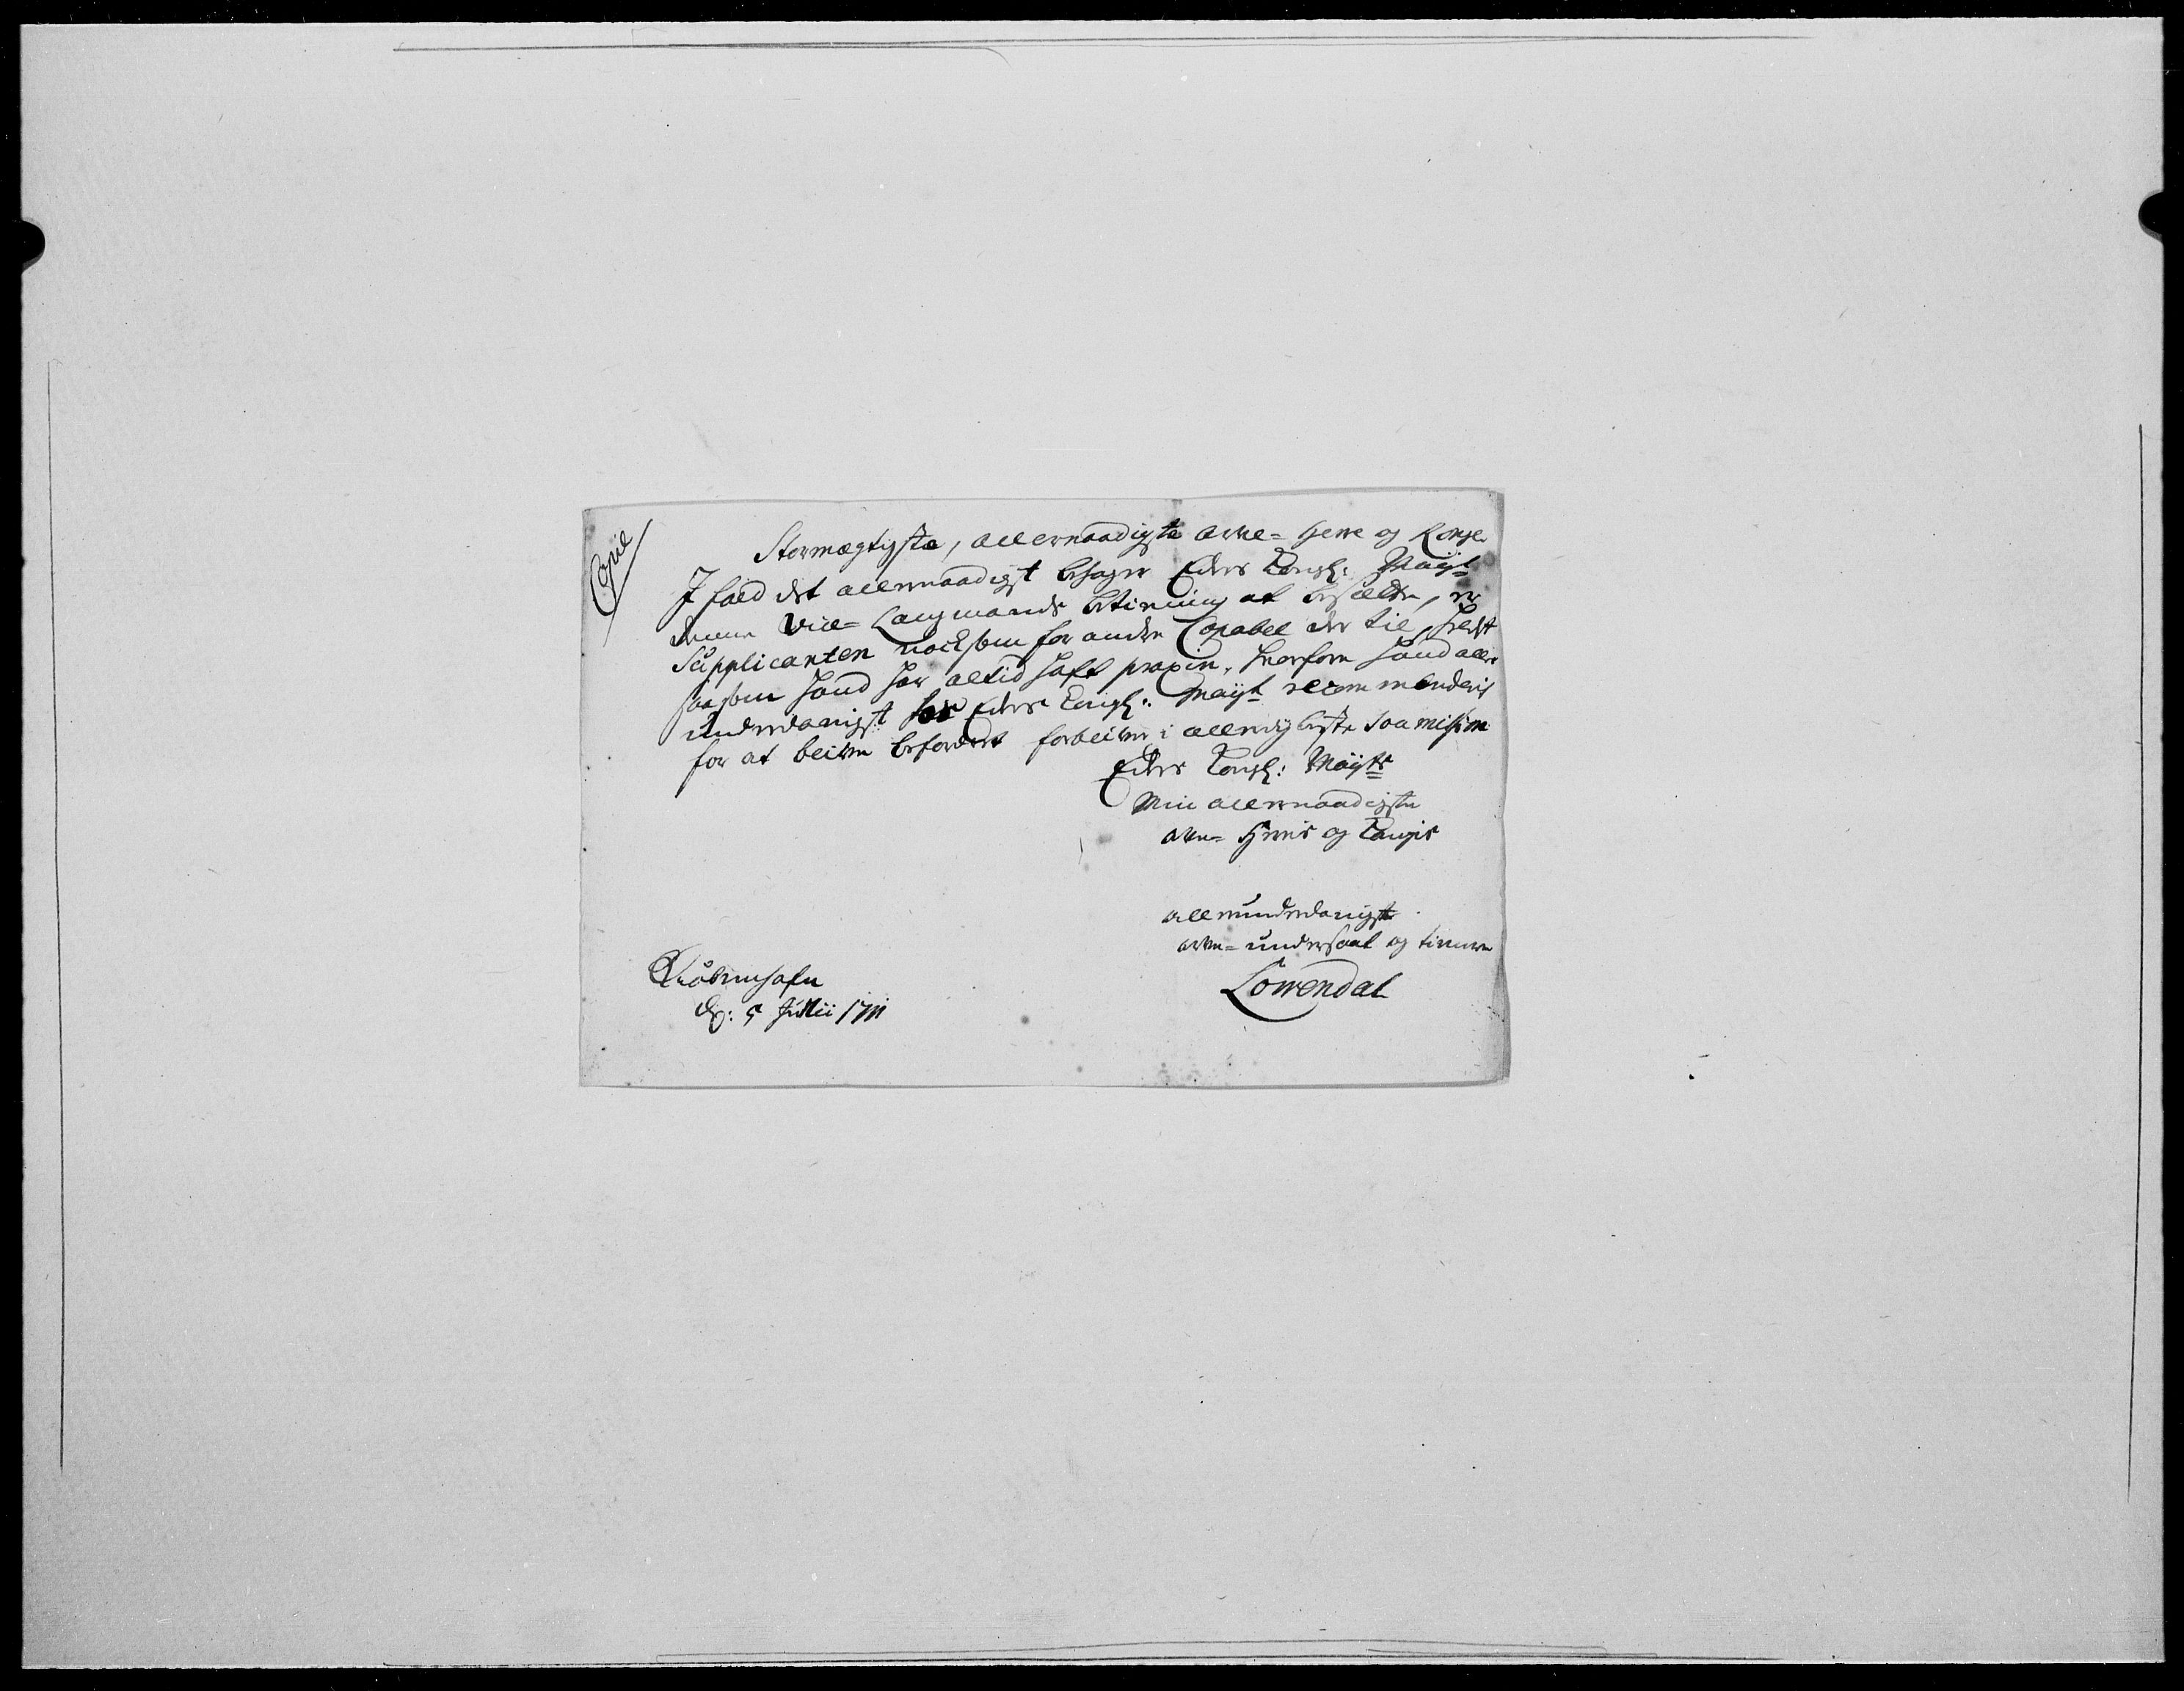 Copie
Stormægtigste, allernaadigste arve-Herre og Konge.
I fald det allernaadigst behager Eders Kongl: Mayt
denne Vice-Laugmands betiening at besætte, er
Supplicanten nocksom for anden Capabel der til, helst
saasom hand har altid haft praxin, hvorfore hand aller
underdanigst for Eders Kongl: Mayt recommenderis
for at blifve befordret forblifver i allerdybeste Soumission
Eders Kongl: Mayts
Min allernaadigste
arve-Herris og Kongis
allerunderdanigste
arve-undersaat og tienere
Kiöbenhafn
d: 5 Julii 1711
Löwendal